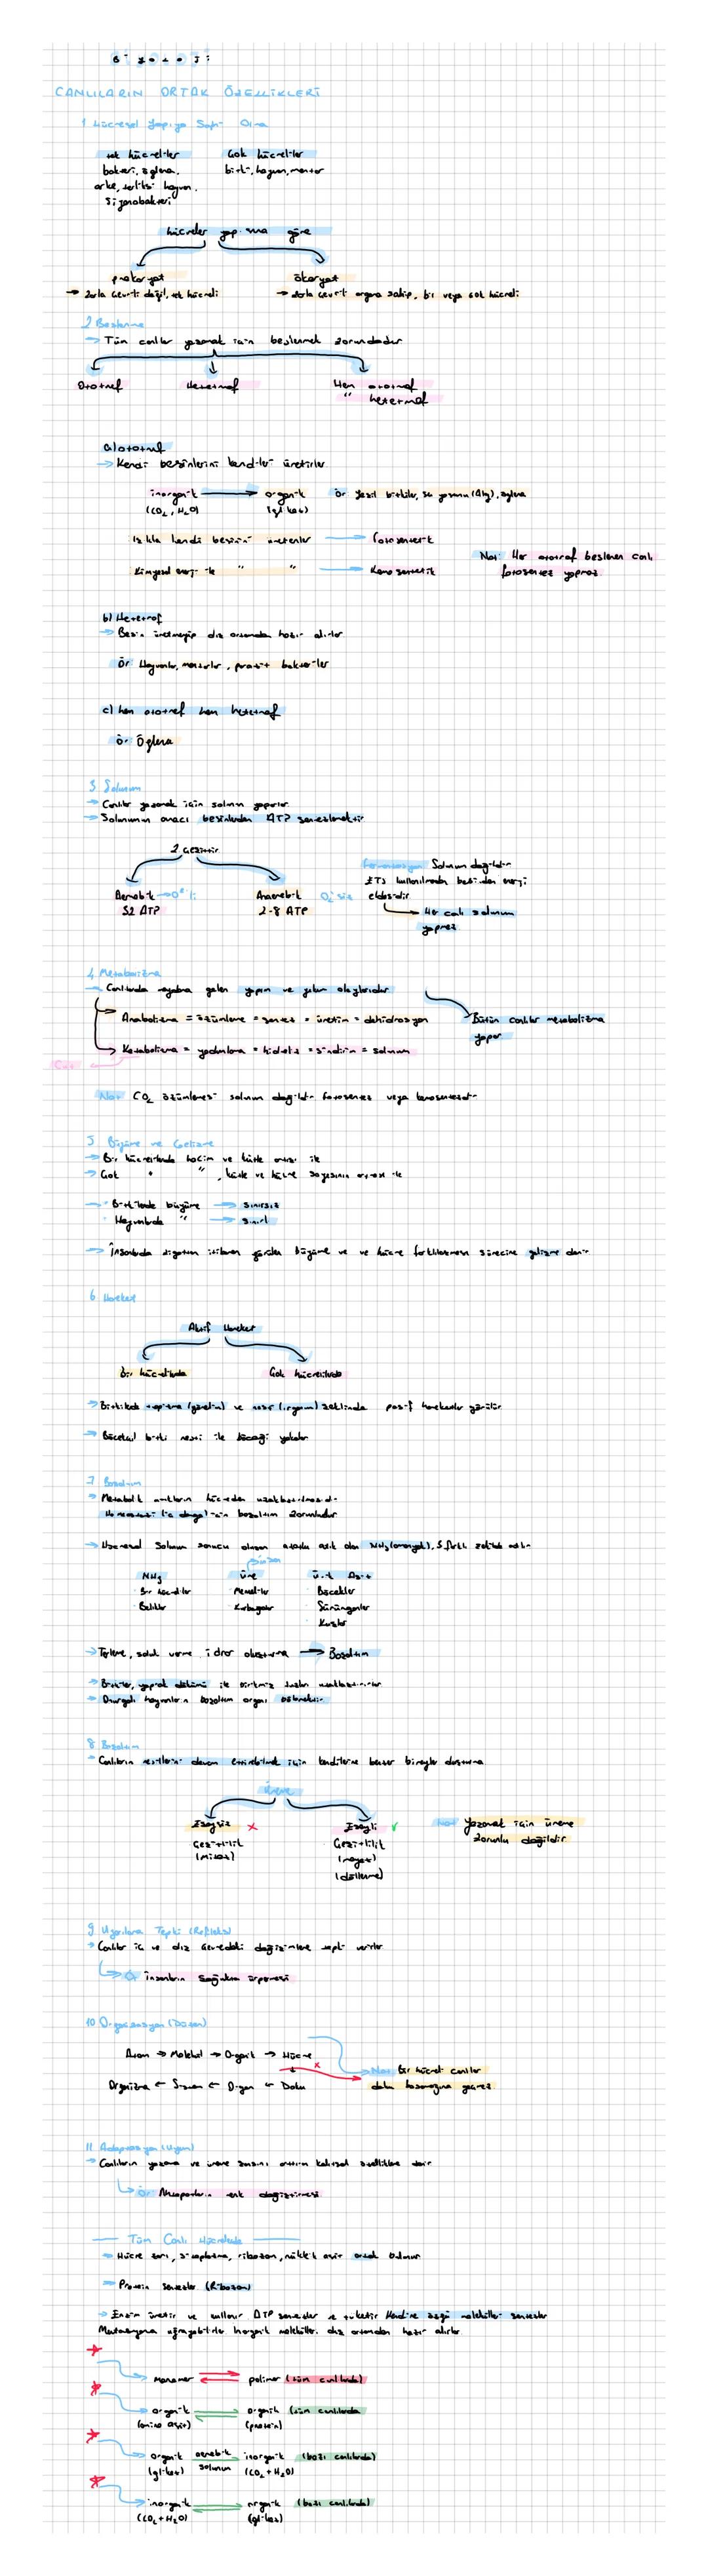 Biyoloji
CANLILARIN ORTAK ÖZELLİKLERİ
1 Hücresel Yapıya Sahip Olma
tek hücreliler Çok hücreliler
bakteri, öglena, bitki, hayvan, mantar
arke, terliksi hayvan,
Siyanobakteri
hücreler yapısına göre
prokaryot ökaryot
→ Zarla çevrili değil, tek hücreli → Zarla çevrili organa sahip, bir veya çok hücreli
2 Beslenme
→ Tüm canlılar yaşamak için beslenmek zorundadır
Ototrof Heterotrof Hem ototrof
" heterotrof
a) ototrof
→ Kendi besinlerini kendileri üretirler
inorganik → organik Ör Yeşil bitkiler, su yosunu (Alg), öglena
(CO₂, H₂O) (glikoz)
Işıkla kendi besinini üretenler → fotosentetik
Kimyasal enerji ile " " → Kemosentetik
Not: Her ototrof beslenen canlı
fotosentez yapmaz
b) Heterotrof
→ Besin üretmeyip dış ortamdan hazır alırlar
Ör Hayvanlar, mantarlar, parazit bakteriler
c) hem ototrof hem heterotrof
ör Öglena
3 Solunum
→ Canlılar yaşamak için solunum yaparlar
→ Solunumun amacı besinlerden ATP sentezlemektir
2 Çeşittir
Aerobik → O₂'li Anaerobik O₂'siz
32 ATP 2-8 ATP
Fermantasyon Solunum değildir
ETS kullanılmadan besinden enerji
eldesidir
→ Her canlı solunum
yapmaz
4 Metabolizma
→ Canlılarda meydana gelen yapım ve yıkım olaylarıdır
→ Anabolizma = özümleme = sentez = üretim = dehidrasyon
→ Katabolizma = yadımlama = hidroliz = sindirim = solunum
Bütün canlılar metabolizma
yapar
Not CO₂ özümlemesi solunum değildir fotosentez veya kemosentezdir
5 Büyüme ve Gelişme
→ Bir hücrelilerde hacim ve kütle artışı ile
→ Çok " ", kütle ve hücre sayısının artması ile
→ Bitkilerde büyüme → sınırsız
Hayvanlarda " → sınırlı
→ İnsanlarda zigottan itibaren görülen büyüme ve ve hücre farklılaşması sürecine gelişme denir
6 Hareket
Aktif Hareket
Bir hücrelilerde Çok hücrelilerde
→ Bitkilerde tropizma (yönelim) ve nasti (ırganım) şeklinde pasif hareketler görülür
→ Böcekçil bitki nasti ile böceği yakalar
7 Boşaltım
→ Metabolik atıkların hücreden uzaklaştırılmasıdır
Homeostazi (iç denge) için boşaltım zorunludur
→ Hücresel Solunum sonucu oluşan azotlu atık olan NH₃ (amonyak), 3 farklı şekilde atılır
NH₃ Üre Ürik Asit
Bir hücreliler Memeliler Böcekler
Balıklar Kurbağalar Sürüngenler
Kuşlar
→ Terleme, soluk verme, idrar oluşturma → Boşaltım
→ Bitkiler, yaprak dökümü ile birikmiş tuzları uzaklaştırırlar
→ Omurgalı hayvanların boşaltım organı böbrektir
8 Boşaltım
→ Canlıların nesillerini devam ettirebilmek için kendilerine benzer bireyler oluşturma
Üreme
Eşeysiz x Eşeyli ✓
Çeşitlilik Çeşitlilik
(mitoz) (mayoz)
(döllenme)
Not Yaşamak için üreme
zorunlu değildir
9 Uyarılara Tepki (Refleks)
→ Canlılar iç ve dış çevredeki değişimlere tepki verirler
→ Ör İnsanların soğuktan ürpermesi
10 Organizasyon (Düzen)
Atom → Molekül → Organik → Hücre
Organizma ← Sistem ← Organ ← Doku
Not: Bir hücreli canlılar
doku basamağına geçmez
11 Adaptasyon (Uyum)
→ Canlıların yaşama ve üreme şansını arttıran kalıtsal özelliklere denir
→ Ör: Ahtapotların renk değiştirmesi
Tüm Canlı Hücrelerde
→ Hücre zarı, sitoplazma, ribozom, nükleik asit ortak bulunur
→ Protein sentezler (Ribozom)
→ Enzim üretir ve kullanır ATP sentezler ve tüketir Kendine özgü moleküller sentezler
Mutasyona uğrayabilirler İnorganik molekülleri dış ortamdan hazır alırlar
monomer ⇄ polimer (tüm canlılarda)
organik ⇄ organik (tüm canlılarda
(amino asit) (protein)
organik aerobik inorganik (bazı canlılarda)
(glikoz) solunum (CO₂ + H₂O)
inorganik ⇄ organik (bazı canlılarda)
(CO₂ + H₂O) (glikoz)